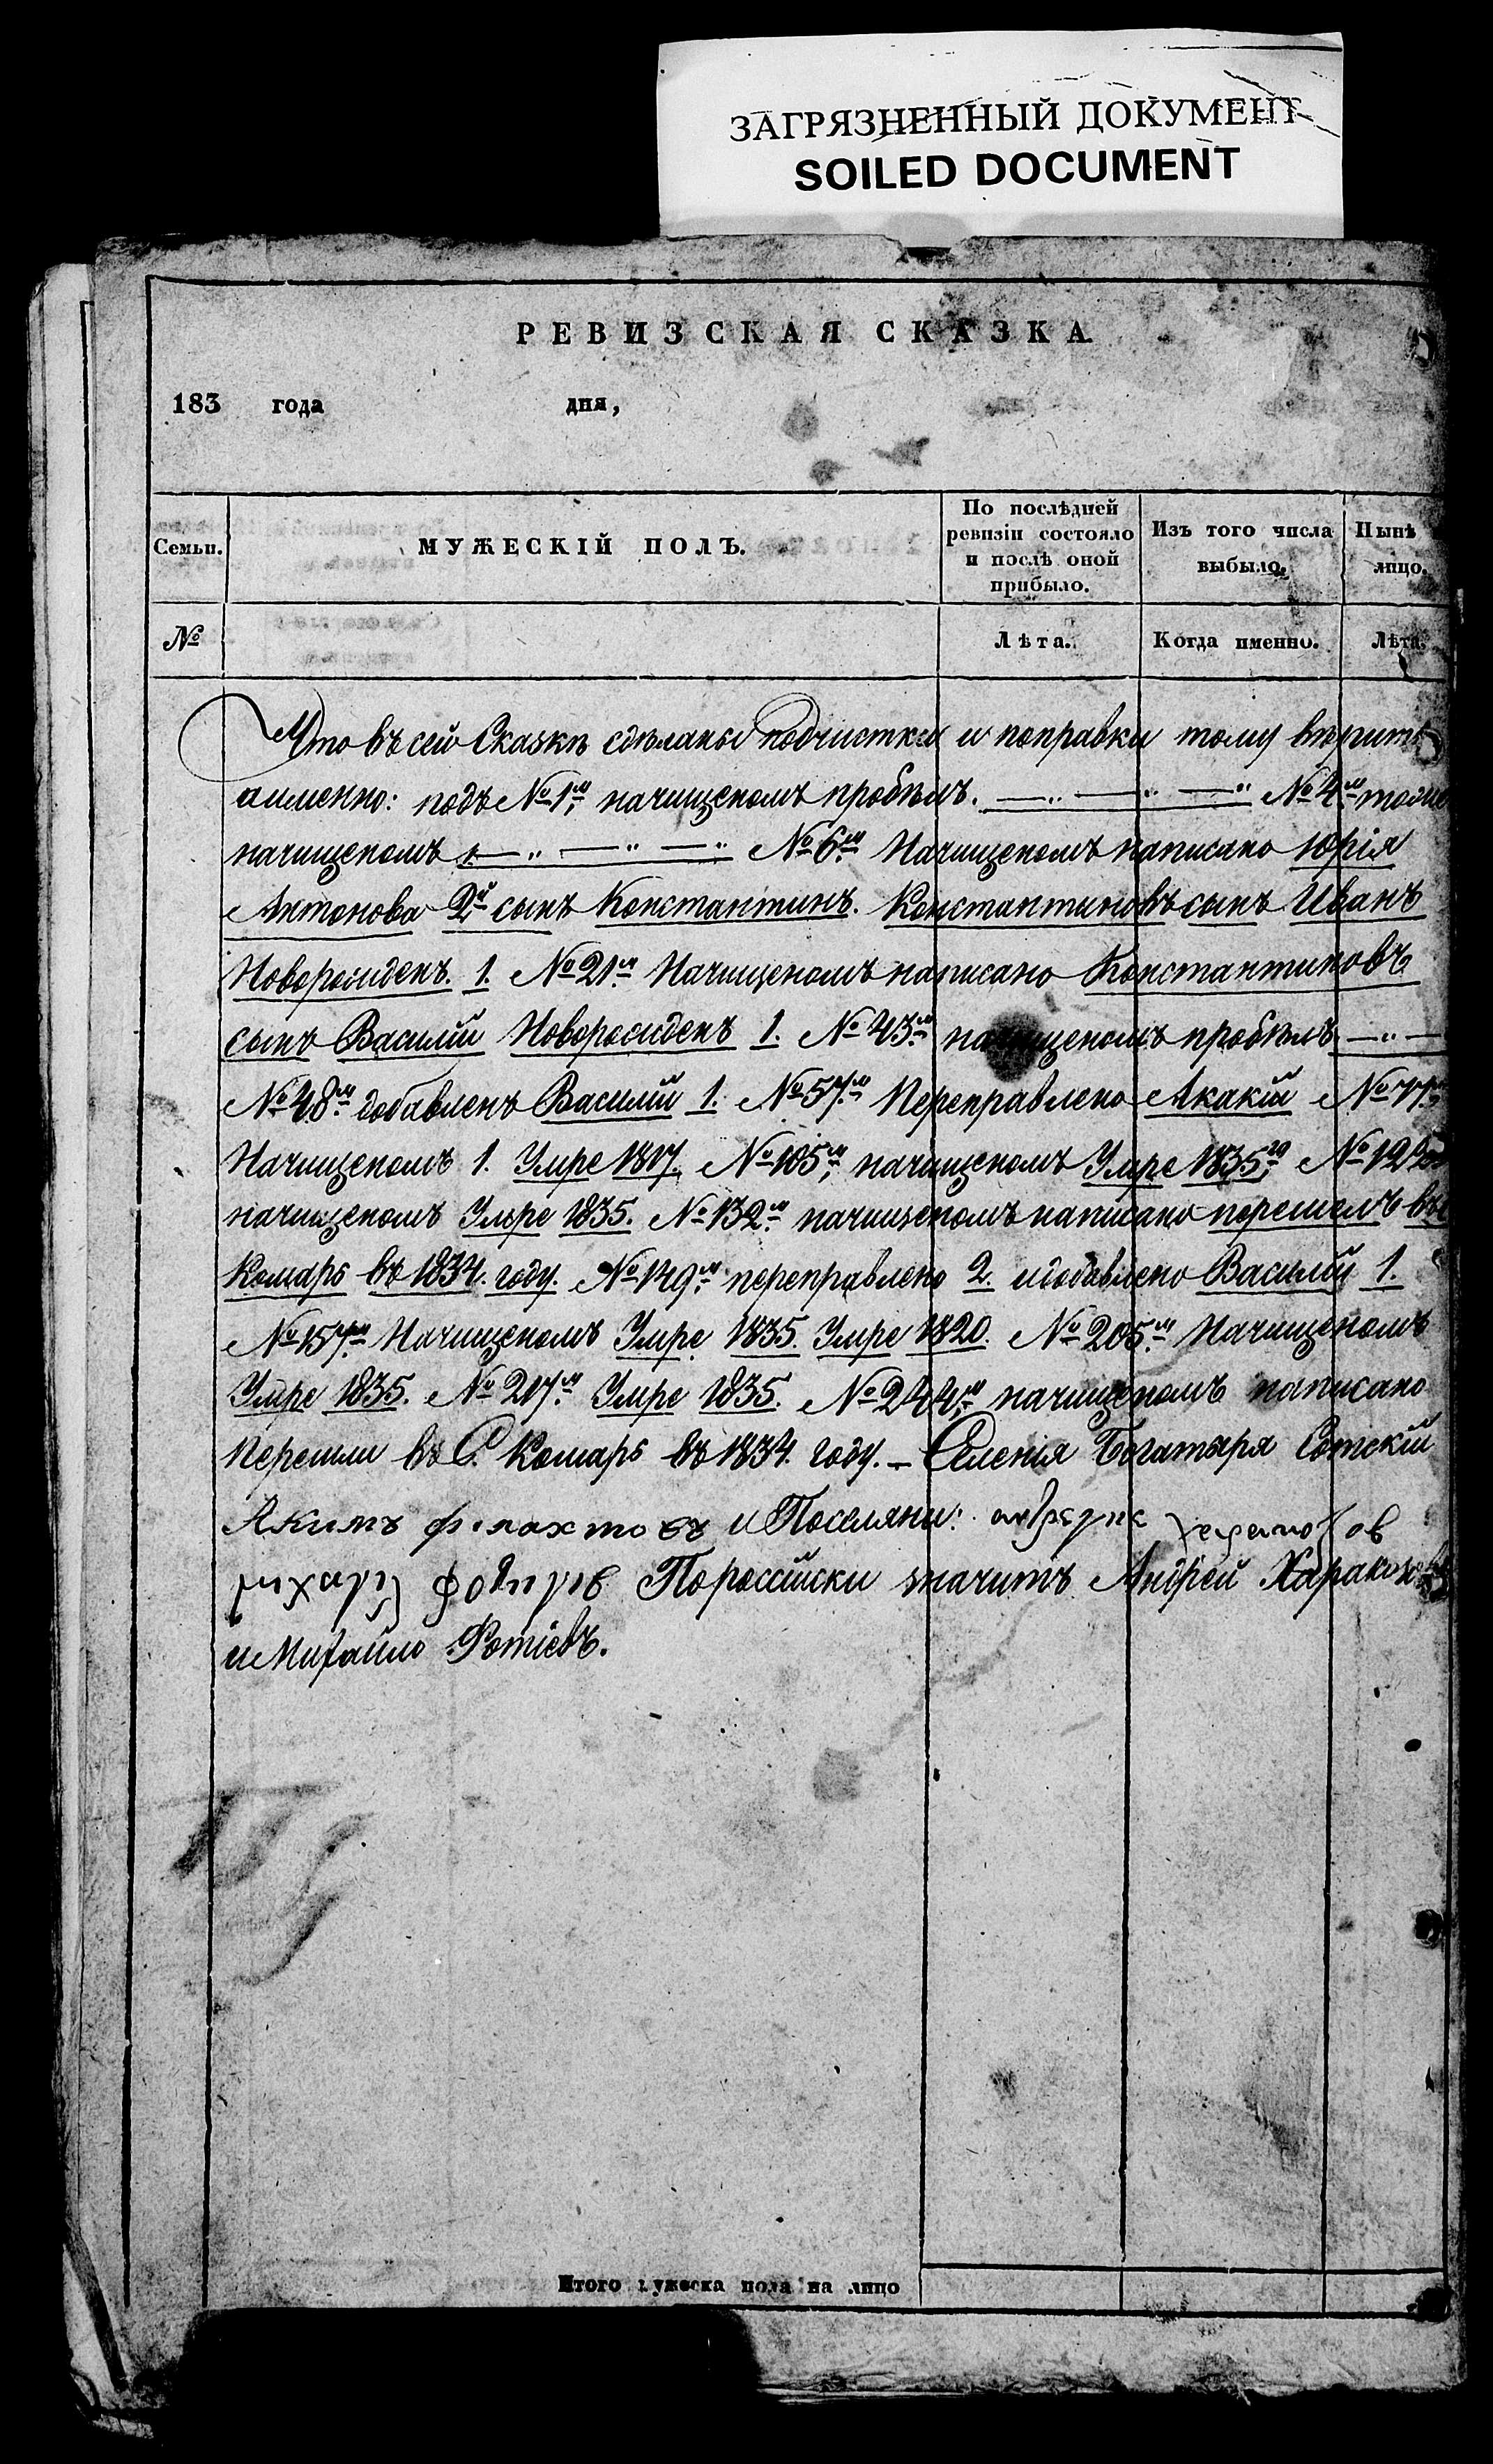 ЗАГРЯЗНЕННЫЙ ДОКУМЕНТ
SOILED DOCUMENT
РЕВИЗСКАЯ СКАЗКА.
183 года дня,
Семьи.
МУЖЕСКІЙ ПОЛЪ.
По послѣдней ревизіи состояло и послѣ оной прибыло.
Изъ того числа выбыло.
Нынѣ лицо.
№
Лѣта.
Когда именно.
Лѣта.
Что въ сей Сказкѣ сдѣланы подчистки и поправки тому вѣрить
а именно: подъ №1.м начищеномъ пробѣлъ. —„ —„ —„ №4.м тоже
начищеномъ —„ —„ —„ №6.м Начищеномъ написано Юрія
Антонова 2й сынъ Константинъ. Константиновъ сынъ Иванъ
Новорожденъ. 1. №21.м Начищеномъ написано Константиновъ
сынъ Василій Новорожденъ 1. №43.м начищеномъ пробѣлъ —„—
№48.м добавленъ Василій 1. №57.м Переправлено Акакій №77.м
Начищеномъ 1. Умре 1817. №105.м, начищеномъ Умре 1835го №122
начищеномъ Умре 1835. №132.м начищеномъ написано перешелъ въ
Комарь въ 1834. году. №149.м переправлено 2. и добавлено Василій 1.
№157.м Начищеномъ Умре 1835. Умре 1820. №205.м Начищеномъ
Умре 1835. №217.м Умре 1835. №244.м начищеномъ написано
Перешли въ С. Комарь въ 1834. году. — Селенія Богатыря Сотскій
Акимъ и Поселяни:
Пороссійски значитъ Андрей
и Михайло Фотіевъ.
Итого мужеска пола на лицо